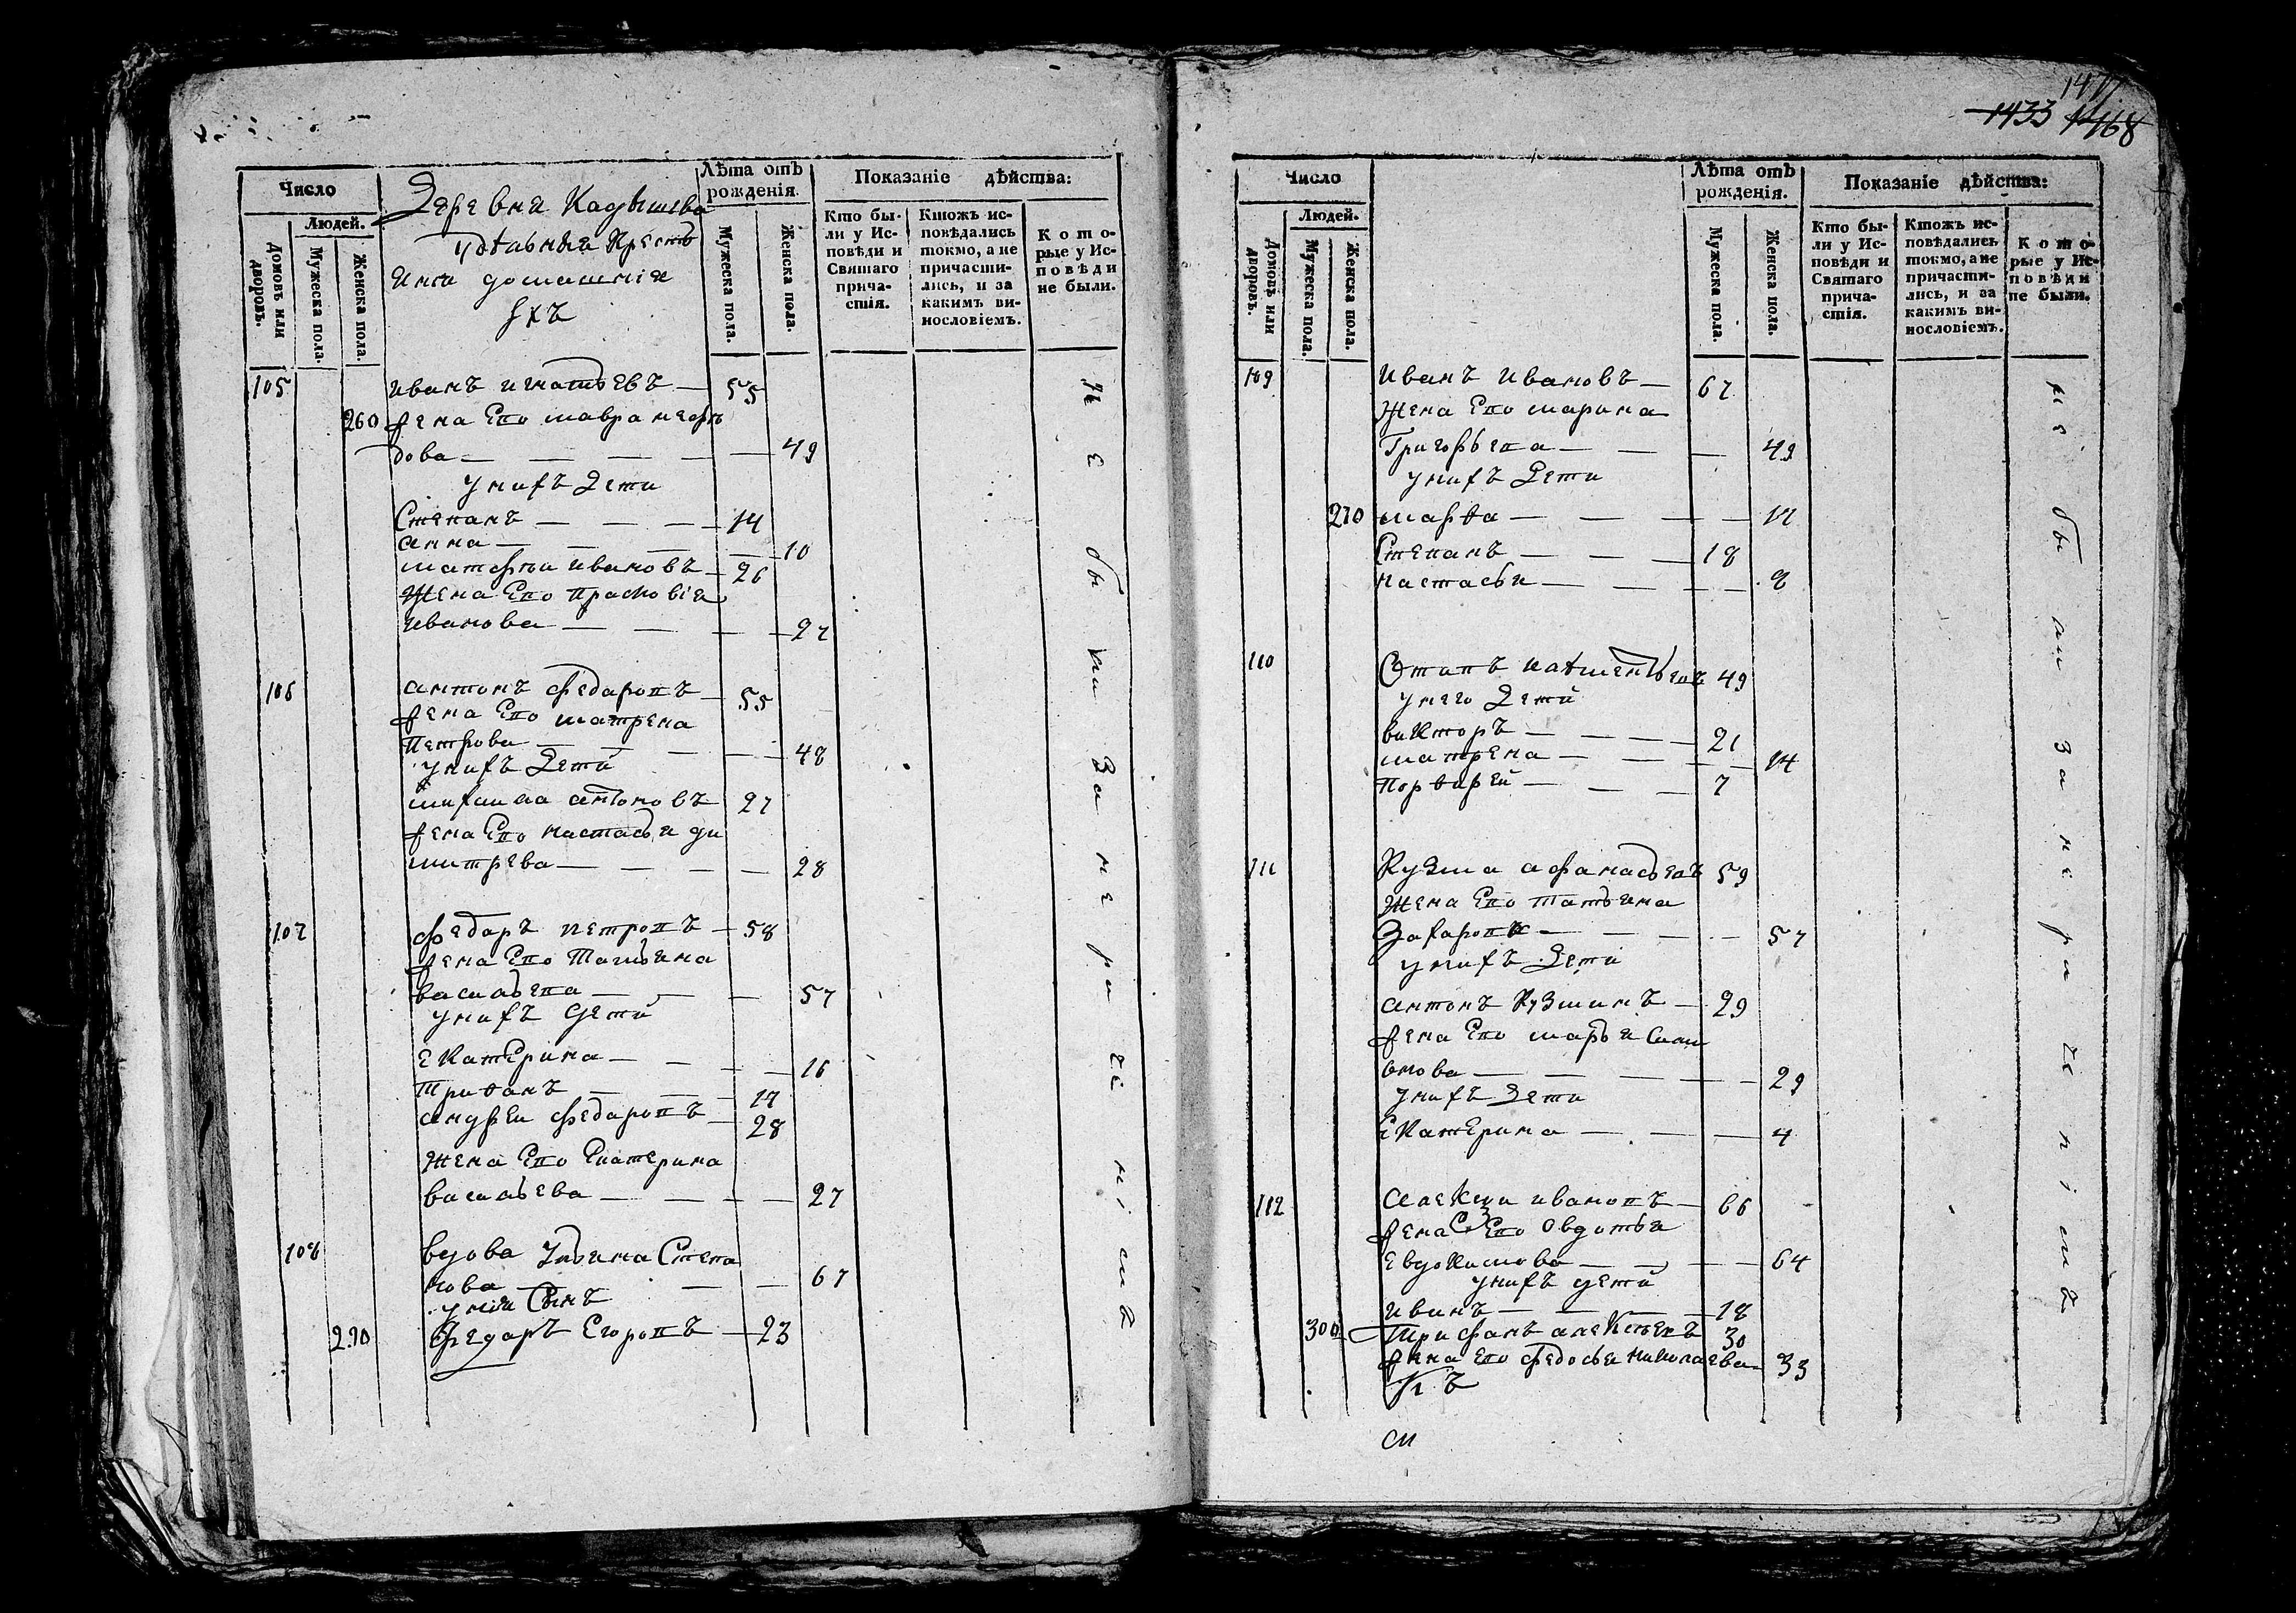 1433
Число
Людей.
Домовъ или дворовъ.
Мужеска пола.
Женска пола.
Деревня Кадышева
удѣльныя Крестья
ихъ
Лѣта отъ
рожденія.
Мужеска пола.
Женска пола.
Показаніе дѣйства:
Кто бы-
ли у Ис-
повѣди и
Святаго
прича-
стія.
Ктожъ ис-
повѣдались
токмо, а не
причасти-
лись, и за
какимъ ви-
нословіемъ.
Кото-
рые у Ис-
повѣди
не были.
105 Иванъ Игнатьевъ — 55
260 жена Его мавра мефо
дова — 49
У нихъ Дети
Степанъ — 14
анна — 10
матфѣи ивановъ — 26
Жена Его Прасковія
Иванова — 27
106 антонъ федаровъ — 55
жена Его матрена
Петрова — 48
У нихъ Дети
михаила антоновъ 27
жена Его настасья ди
митрева — 28
107 федаръ петровъ — 58
жена Его Татьяна
васильева — 57
У нихъ Дети
Екатерина — 16
Трифанъ — 14
андреи федаровъ — 28
Жена Его Екатерина
васильева — 27
108 вдова Ульяна Степа
нова — 67
У нея Сынъ
290 федаръ Егоровъ — 23
не были за нераченіемъ
Число
Людей.
Домовъ или дворовъ.
Мужеска пола.
Женска пола.
Лѣта отъ
рожденія.
Мужеска пола.
Женска пола.
Показаніе дѣйства:
Кто бы-
ли у Ис-
повѣди и
Святаго
прича-
стія.
Ктожъ ис-
повѣдались
токмо, а не
причасти-
лись, и за
какимъ ви-
нословіемъ.
Кото-
рые у Ис-
повѣди
не были.
109 Иванъ Ивановъ — 67
Жена Его марина
Григорьева — 49
У нихъ Дети
270 марфа —
Степанъ — 18
настасья —
110 49
У него Дети
викторъ — 21
матрена — 14
7
111 Кузма афанасьевъ 59
Жена Его татьяна
Захарова — 57
У нихъ Дети
антонъ Кузминъ — 29
жена Его марья Сми
внова — 29
У нихъ Дети
Екатерина — 4
112 алексѣи ивановъ — 66
жена Его Овдотья
Евдокимова — 64
У нихъ дети
Иванъ — 18
300 Трифанъ алексѣевъ 30
жена Его федосья николаева 33
не были за нераченіемъ